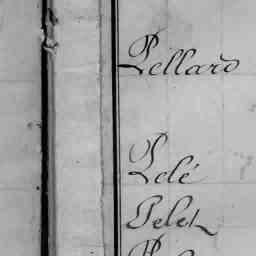 Pellard
Pelé
Pelet